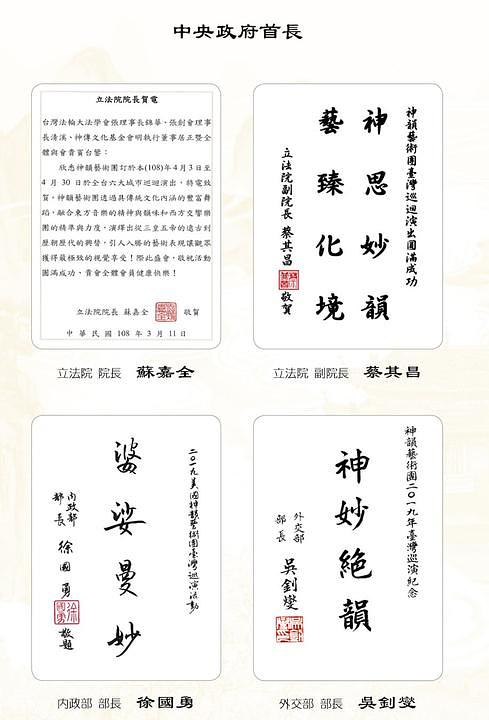 中央政府首長
立法院院長賀電
台灣法輪大法學會張理事長錦華、張創會理事
長清溪、神傳文化基金會明執行董事居正暨全
體與會貴賓台鑒：
欣悉神韻藝術團訂於本(108)年4月3日至
4月30日於全台六大城市巡迴演出，特電致
賀。神韻藝術團透過具傳統文化內涵的豐富舞
蹈，融合東方音樂的精神與韻味和西方交響樂
團的精準與力度，演繹出從三皇五帝的遠古到
歷朝歷代的興替，引人入勝的藝術表現讓觀眾
獲得最極致的視覺享受！際此盛會，敬祝活動
圓滿成功、貴會全體會員健康快樂！
立法院院長 蘇嘉全 敬賀
中華民國108年3月11日
立法院 院長 蘇嘉全
神韻藝術團臺灣巡迴演出圓滿成功
神思妙韻
藝臻化境
立法院副院長 蔡其昌 敬賀
立法院 副院長 蔡其昌
二〇一九美國神韻藝術團臺灣巡演活動
婆娑曼妙
內政部
部長 徐國勇 敬題
徐國勇
內政部 部長 徐國勇
神韻藝術團二〇一九年臺灣巡演紀念
神妙絕韻
外交部
部長 吳釗燮
外交部 部長 吳釗燮